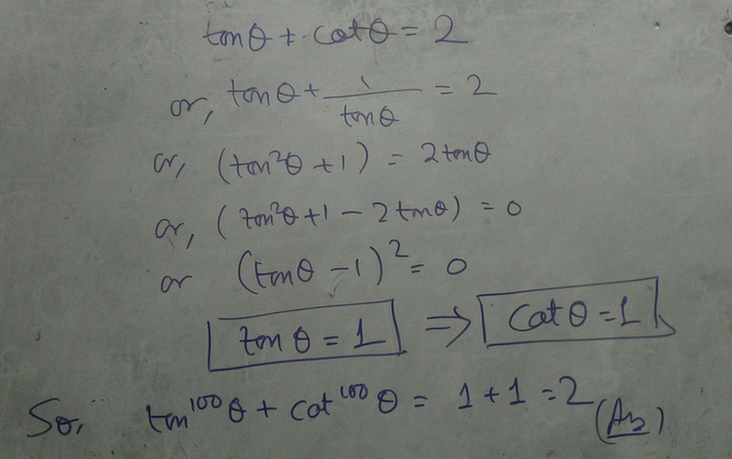 tanθ + cotθ = 2
or, tanθ + 1/tanθ = 2
or, (tan²θ + 1) = 2tanθ
or, (tan²θ + 1 - 2tanθ) = 0
or (tanθ - 1)² = 0
tanθ = 1 ⇒ cotθ = 1
So, tan¹⁰⁰θ + cot¹⁰⁰θ = 1 + 1 = 2 (Ans)